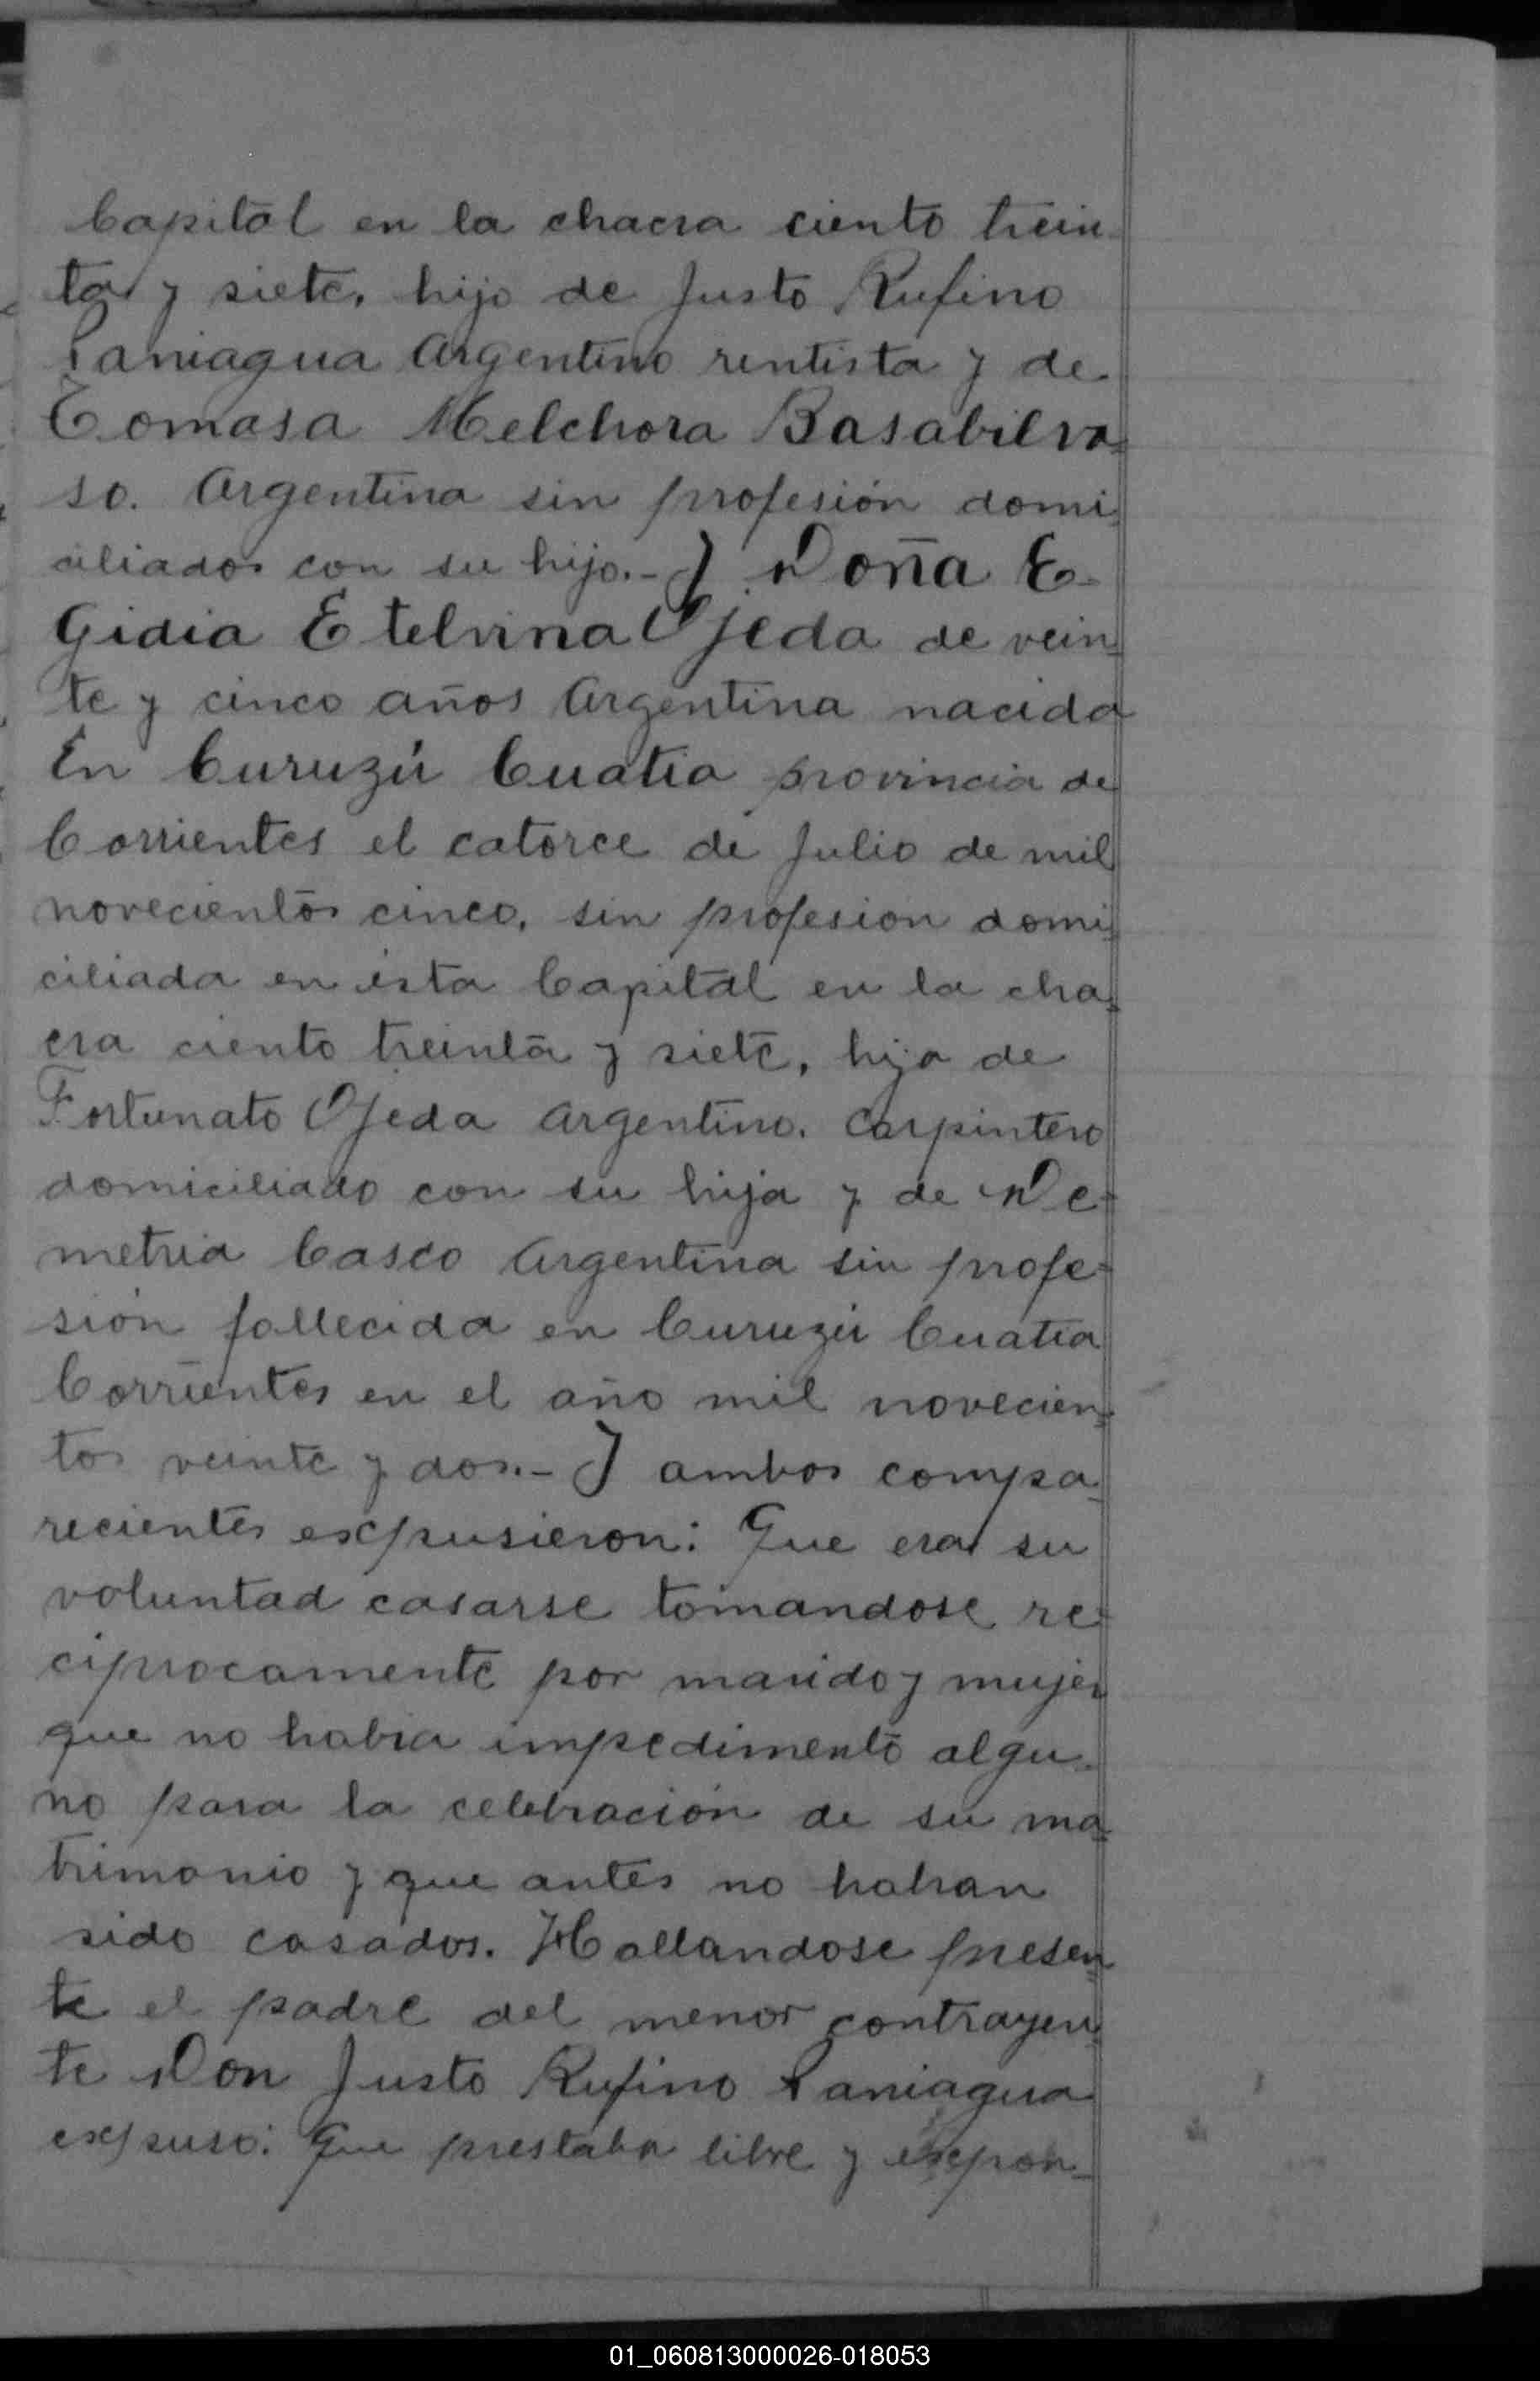 Capital en la chacra ciento trein-
ta y siete, hijo de Justo Rufino
Paniagua Argentino rentista y de
Tomasa Melchora Basabilva=
so. Argentina sin profesión domi
ciliados con su hijo.- Y Doña E-
Gidia Etelvina Ojeda de vein=
te y cinco años Argentina nacida
En Curuzú Cuatia provincia de
Corrientes el catorce de Julio de mil
novecientos cinco, sin profesion domi=
ciliada en ésta Capital en la cha=
cra ciento treinta y siete, hija de
Fortunato Ojeda Argentino. Carpintero
domiciliado con su hija y de De=
metria Casco Argentina sin profe=
sión fallecida en Curuzú Cuatia
Corrientes en el año mil novecien=
tos veinte y dos.- Y ambos compa=
recientes expusieron: Que era su
voluntad casarse tomandose re=
ciprocamente por marido y mujer
que no habia impedimento algu=
no para la celebración de su ma=
trimonio y que antes no habian
sido casados. Hallandose presen=
te el padre del menor contrayen=
te Don Justo Rufino Paniagua
expuso: Que prestaba libre y expon=
01_060813000026-018053